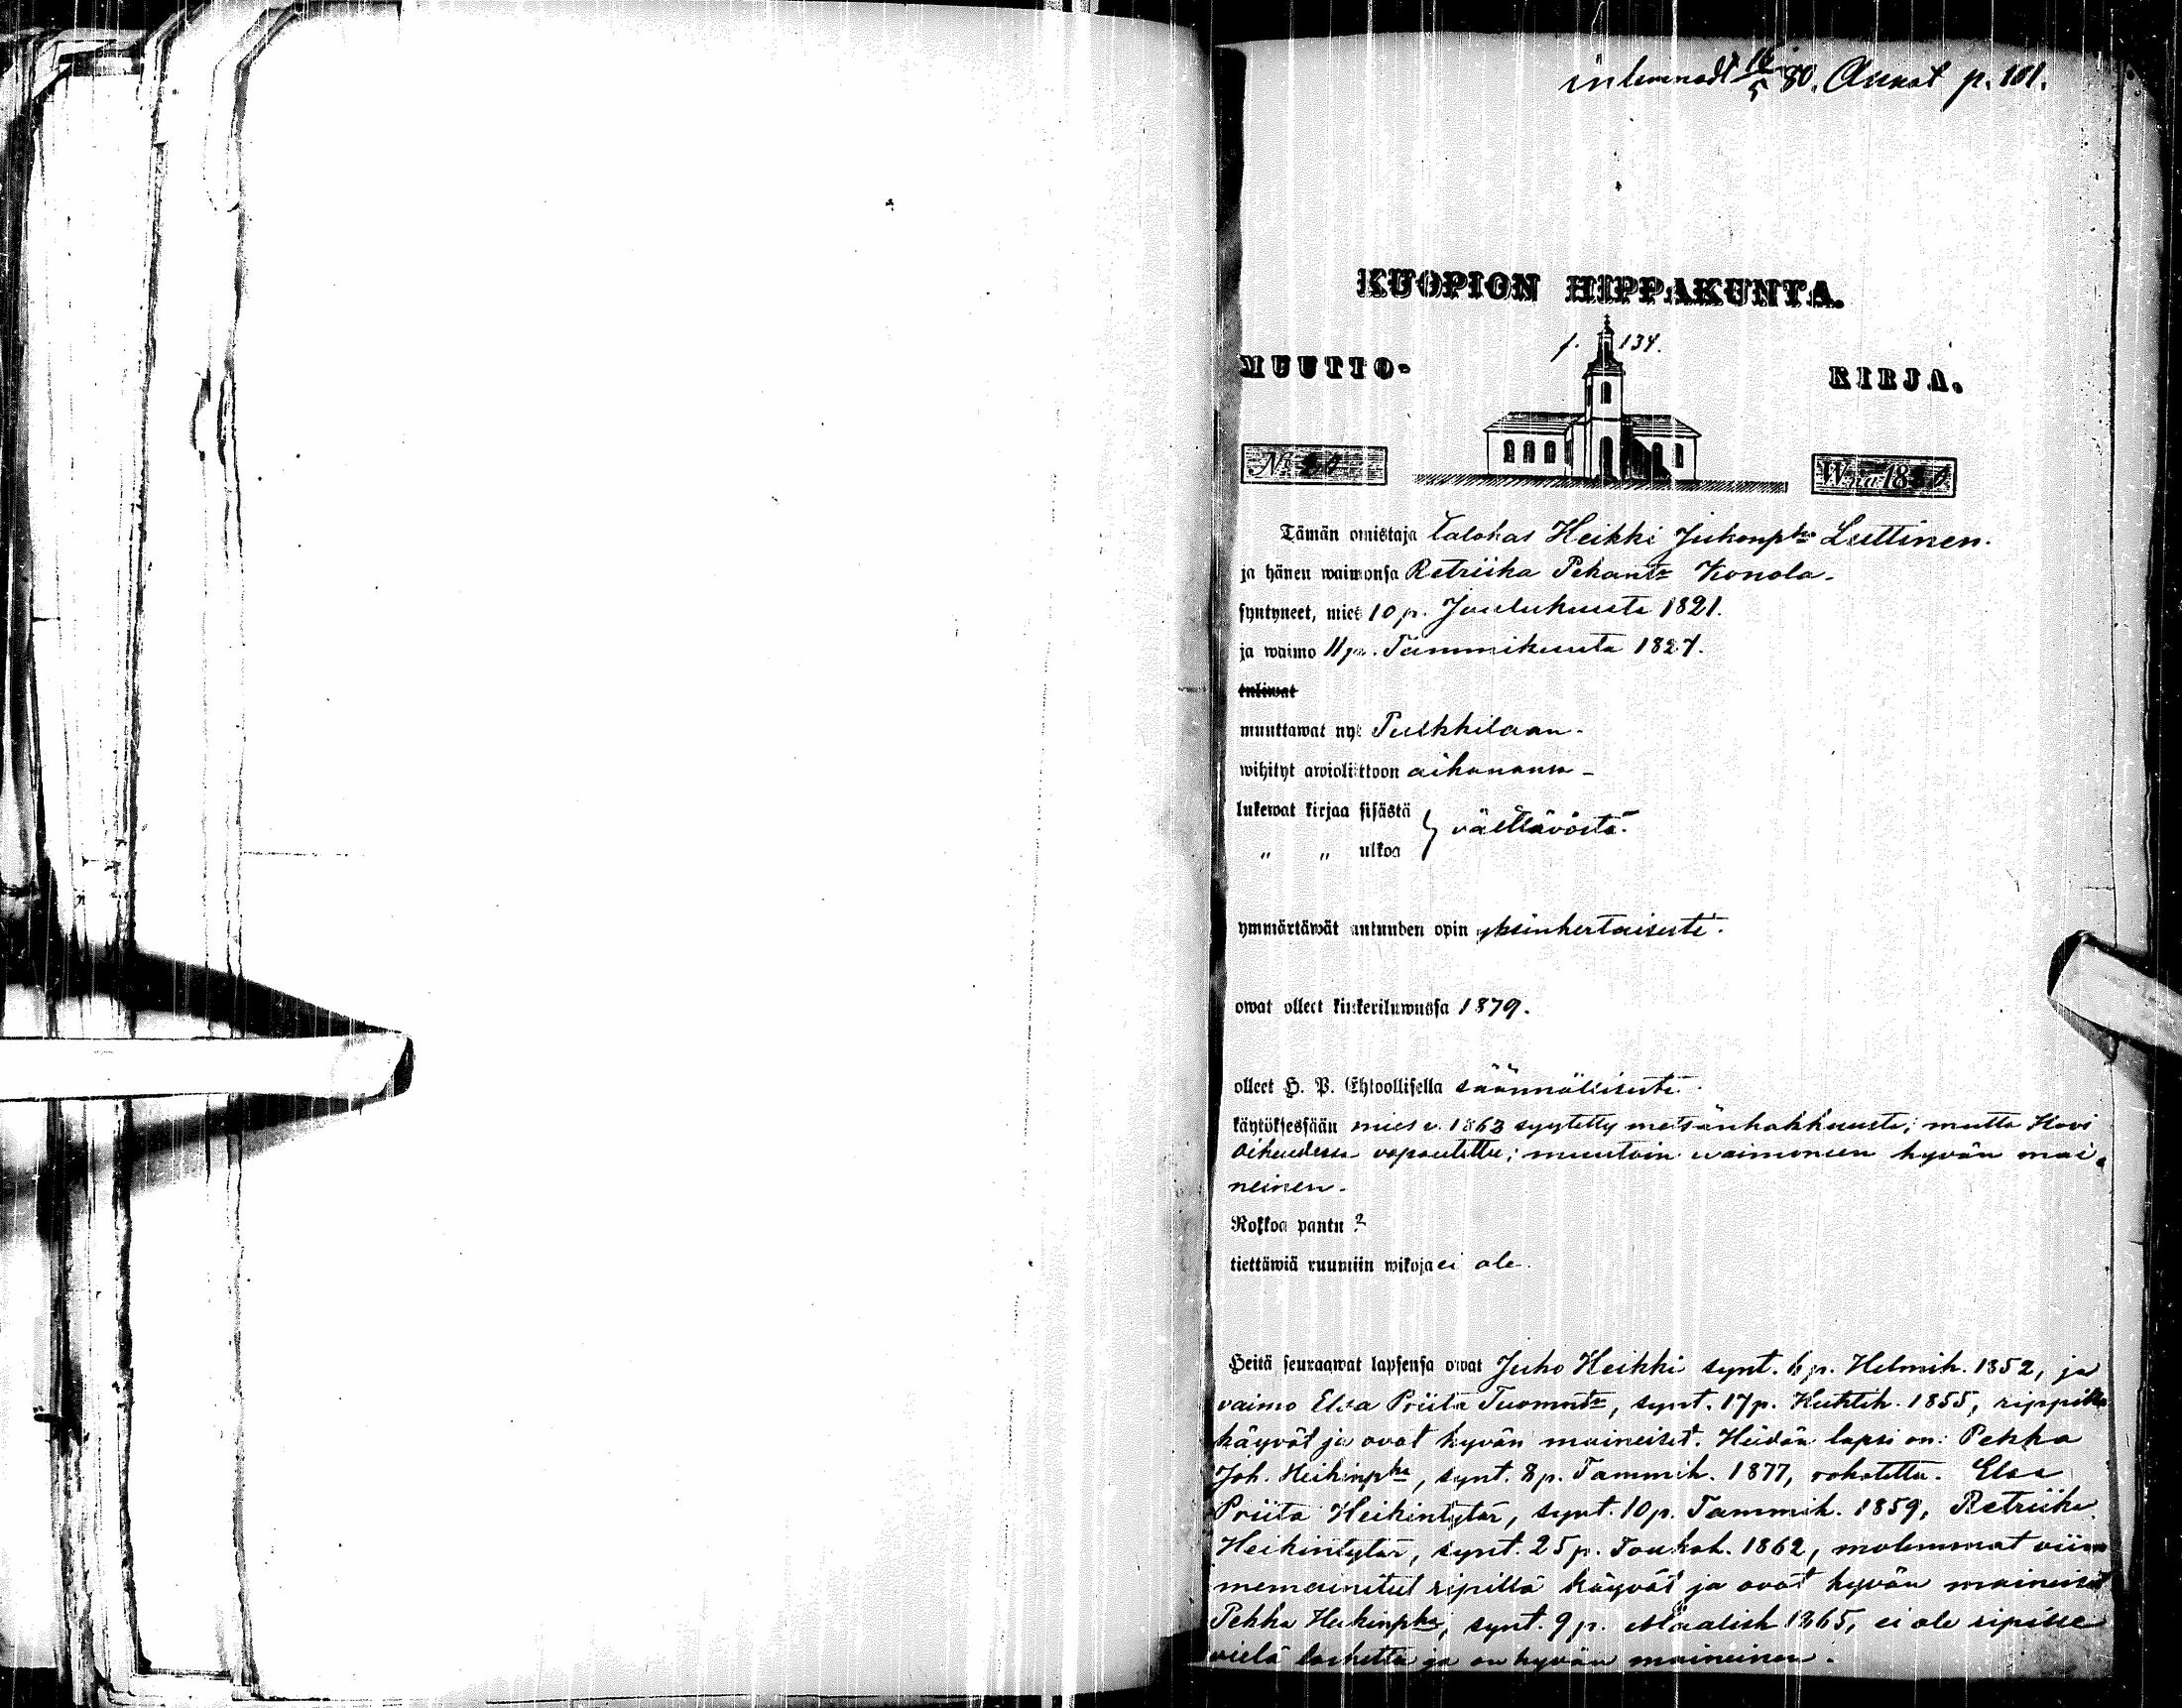 inlemnadt 16/5 80. Annot p. 101.
KUOPION HIPPAKUNTA.
f. 134.
MUUTTO- KIRJA.
No 20 Wna 1880
Tämän omistaja talokas Heikki Juhonpka Luttinen.
ja hänen waimonsa Retriika Pekantr Konola.
syntyneet, mies 10 p. Joulukuuta 1821.
ja waimo 11 p. Tammikuuta 1827.
tuliwat
muuttawat nyt Pulkkilaan.
wihityt awioliittoon aikanansa -
lukewat kirjaa sisästä } välttävästi.
" " ulkoa
ymmärtäwät autuuden opin yksinkertaisesti.
owat olleet kinkeriluwussa 1879.
olleet H. P. Ehtoollisella säännöllisesti.
käytöksessään mies v. 1863 syytetty metsänhakkuusta; mutta Hovi
oikeudessa vapautettu; muutoin waimonsen hyvän mai-
neinen.
Rokkoa pantu ?
tiettäwiä ruumiin wikoja ei ole.
Heitä seuraawat lapsensa owat Juho Heikki synt. 6 p. Helmik. 1852, ja
vaimo Elsa Priita Tuomntr, synt. 17 p. Huhtik. 1855, rippillä
käyvät ja ovat hyvän maineiset. Heidän lapsi on: Pekka
Joh. Heikinpka, synt. 8 p. Tammik. 1877, rokotettu. Elsa
Priita Heikintytär, synt. 10 p. Tammik. 1859, Retriika
Heikintytär, synt. 25 p. Toukok. 1862, molemmat viim
memainitut ripillä käyvät ja ovat hyvän maineiset
Pekka Heikinpka, synt. 9 p. Maalisk 1865, ei ole ripille
vielä laskettu ja on hyvän maineinen.